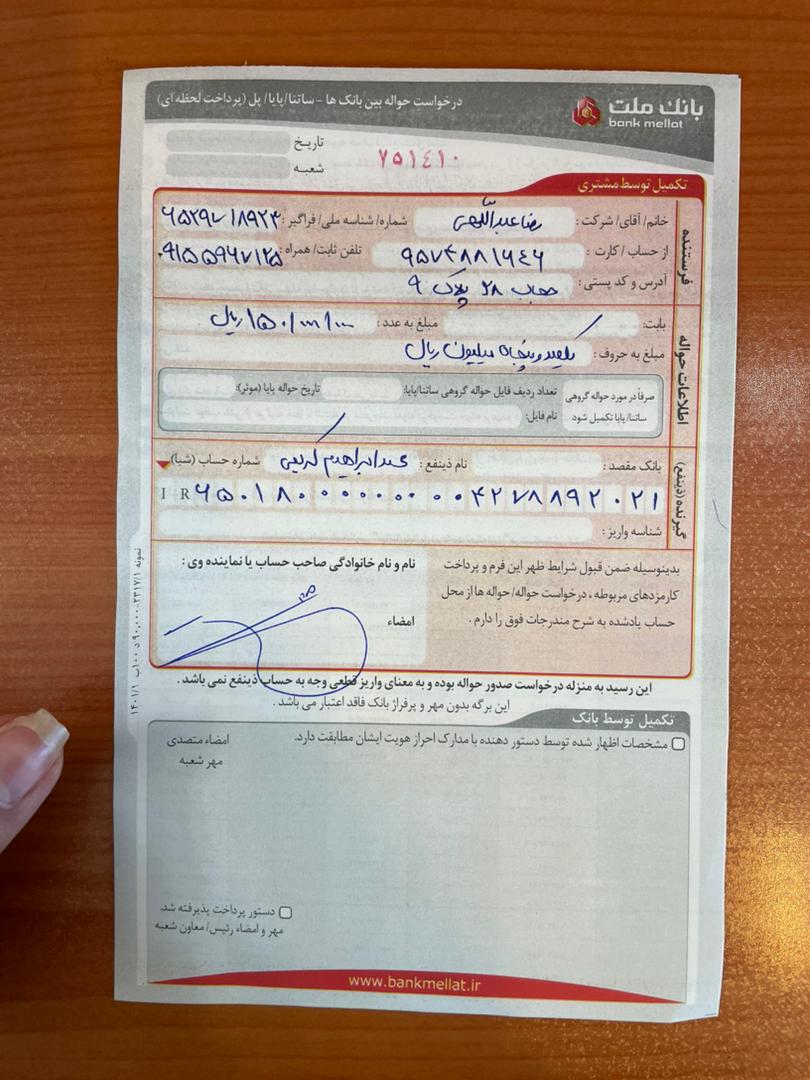 بانک ملت
bank mellat
درخواست حواله بین بانک ها - ساتنا/پایا/ پل (پرداخت لحظه ای)
تاریخ
شعبه
۷۵۱۴۱۰
تکمیل توسط مشتری
فرستنده
خانم/ آقای/ شرکت: رضا عبداللهی شماره/ شناسه ملی/ فراگیر:
از حساب / کارت: ۹۵۷۴۸۸۱۶۴۶ تلفن ثابت/ همراه: ۰۹۱۵۵۹۶۷۱۲۵
آدرس و کد پستی: ۲۸ پلاک ۹
اطلاعات حواله
بابت: مبلغ به عدد: ۱۵۰/۰۰۰/۰۰۰ ریال
مبلغ به حروف: یکصد و پنجاه میلیون ریال
صرفاً در مورد حواله گروهی ساتنا/ پایا تکمیل شود
تعداد ردیف فایل حواله گروهی ساتنا/پایا: تاریخ حواله پایا (موثر):
نام فایل:
گیرنده (ذینفع)
بانک مقصد: نام ذینفع: عبدابراهیم کریمی شماره حساب (شبا)
IR ۶۵۰۱۸۰۰۰۰۰۰۰۰۰۴۲۷۸۸۹۲۰۲۱
شناسه واریز:
بدینوسیله ضمن قبول شرایط ظهر این فرم و پرداخت
کارمزدهای مربوطه، درخواست حواله/ حواله ها از محل
حساب یادشده به شرح مندرجات فوق را دارم.
نام و نام خانوادگی صاحب حساب یا نماینده وی:
امضاء
این رسید به منزله درخواست صدور حواله بوده و به معنای واریز قطعی وجه به حساب ذینفع نمی باشد.
این برگه بدون مهر و پرفراژ بانک فاقد اعتبار می باشد.
تکمیل توسط بانک
مشخصات اظهار شده توسط دستور دهنده با مدارک احراز هویت ایشان مطابقت دارد.
امضاء متصدی
مهر شعبه
دستور پرداخت پذیرفته شد.
مهر و امضاء رئیس/ معاون شعبه
www.bankmellat.ir